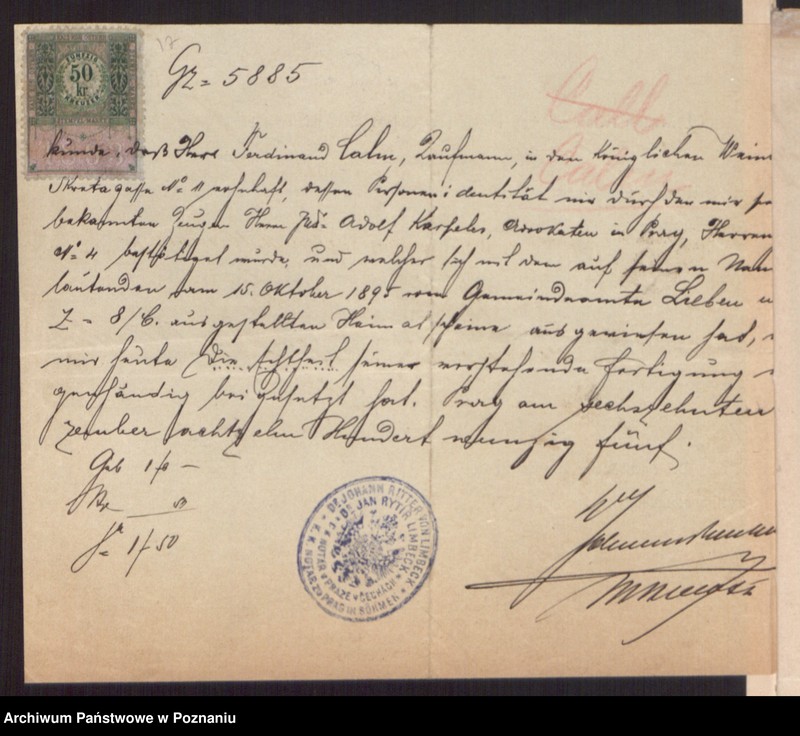 17
Gz = 5885
FÜNFZIG
50
kr.
KREUZER
Calm
kunde, daß Herr Ferdinand Calm, Kaufmann, in den Königlichen Wein
Skretagasse No 11 wohnhaft, dessen Personenidentität mir durch den mir
bekannten Zeugen Herrn Adolf Karpeles, Advokaten in Prag, Herren
No 4 bestätiget wurde, und welcher sich mit dem auf seinen Na
lautenden am 15. Oktober 1895 vom Gemeindeamte Lieben
Z = 8/C. ausgestellten Heimatscheine ausgewiesen hat,
mir heute die Echtheit seiner vorstehende Fertigung
genhändig beigesetzt hat. Prag am sechszehnten
zember achtzehn Hundert neunzig fünf.
Geb 1f –
50
1f 50
DR JOHANN RITTER VON LIMBECK
K.K. NOTAR ZU PRAG IN BÖHMEN
DR JAN RYTÍŘ LIMBECK
C.K. NOTÁŘ V PRAZE V ČECHÁCH
Archiwum Państwowe w Poznaniu